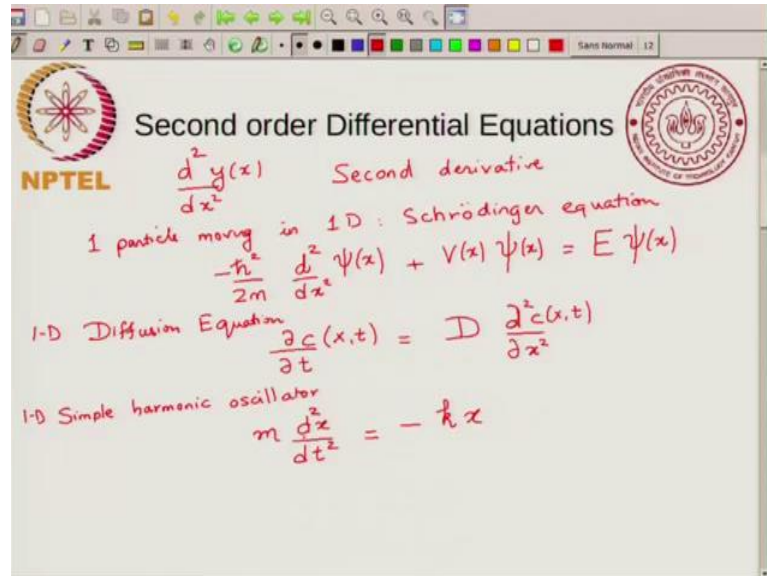 T Sans Normal 12
Second order Differential Equations
NPTEL
d²y(x)/dx² Second derivative
1 particle moving in 1D : Schrödinger equation
-ħ²/2m d²/dx² ψ(x) + V(x) ψ(x) = E ψ(x)
1-D Diffusion Equation
∂c/∂t (x,t) = D ∂²c(x,t)/∂x²
1-D Simple harmonic oscillator
m d²x/dt² = - kx